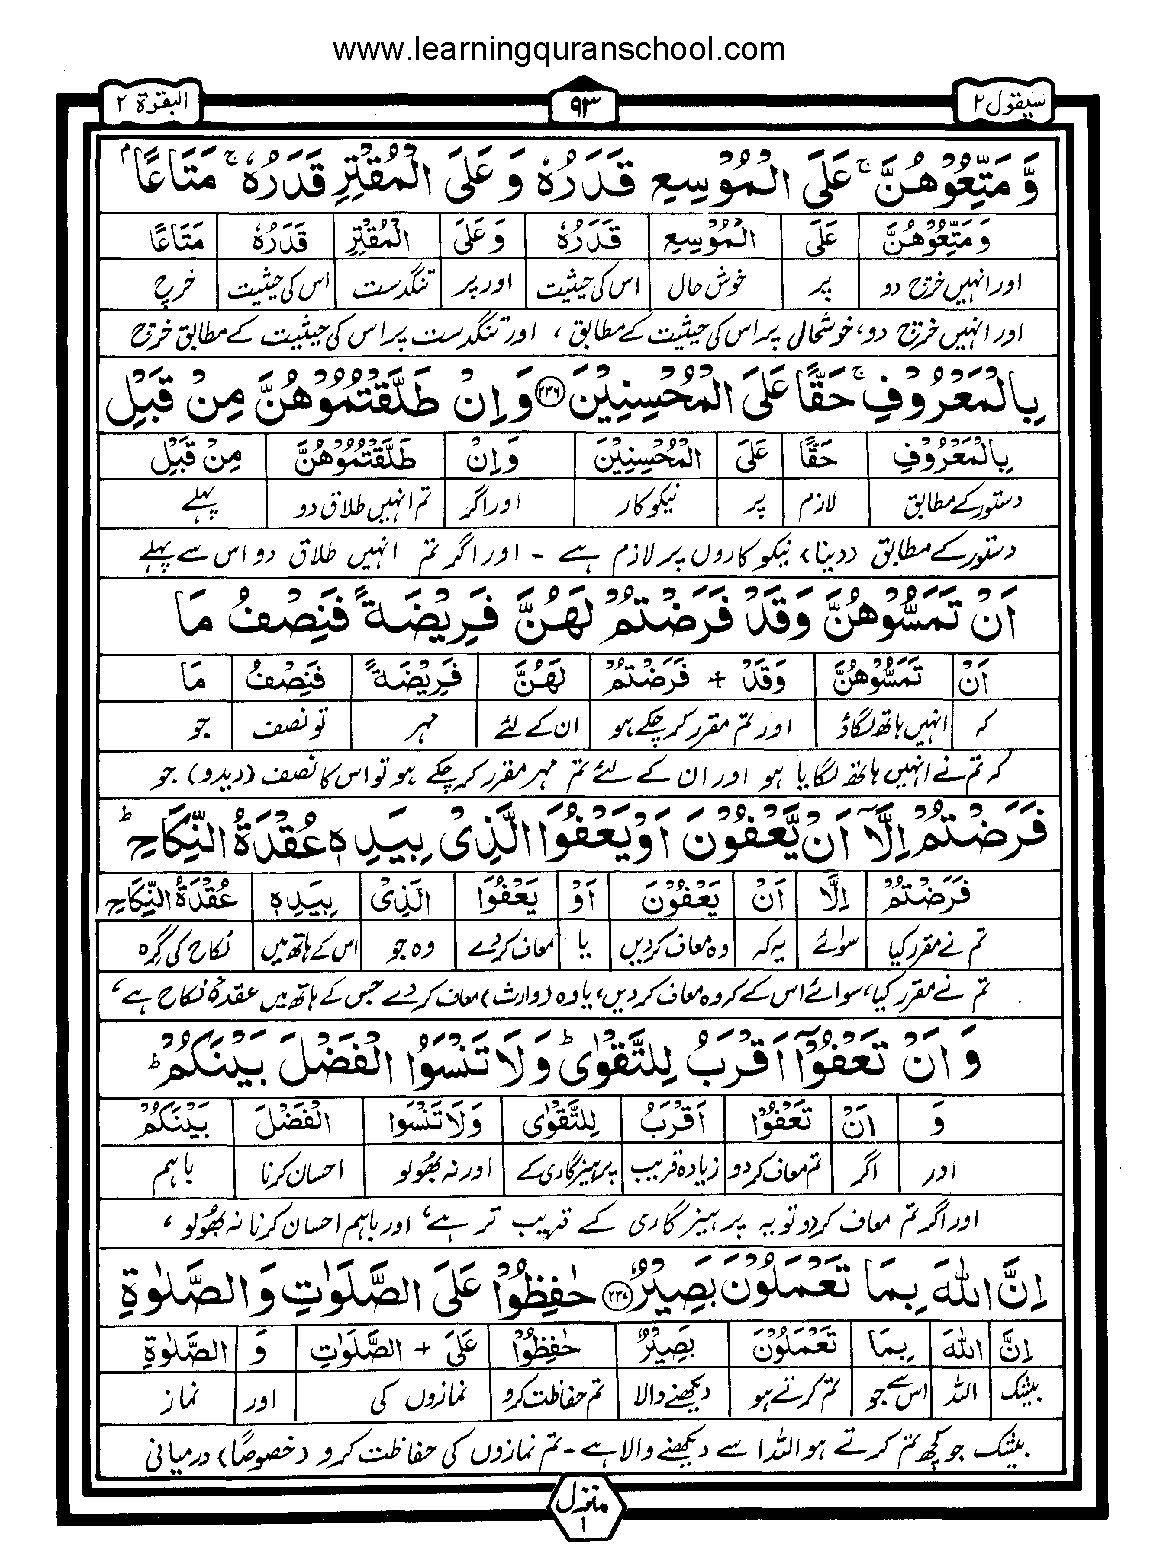 www.learningquranschool.com
سیقول ۲ ۹۳ البقرۃ ۲
وَّ مَتِّعُوْهُنَّ ۚ عَلَى الْمُوْسِعِ قَدَرُهٗ وَ عَلَى الْمُقْتِرِ قَدَرُهٗ ۚ مَتَاعًۢا
وَ مَتِّعُوْهُنَّ عَلَى الْمُوْسِعِ قَدَرُهٗ وَ عَلَى الْمُقْتِرِ قَدَرُهٗ مَتَاعًا
اور انہیں خرچ دو پر خوش حال اس کی حیثیت اور پر تنگدست اس کی حیثیت خرچ
اور انہیں خرچ دو، خوشحال پر اس کی حیثیت کے مطابق ، اور تنگدست پر اس کی حیثیت کے مطابق خرچ
بِالْمَعْرُوْفِ ۚ حَقًّا عَلَى الْمُحْسِنِيْنَ ﴿۲۳۶﴾ وَ اِنْ طَلَّقْتُمُوْهُنَّ مِنْ قَبْلِ
بِالْمَعْرُوْفِ حَقًّا عَلَى الْمُحْسِنِيْنَ وَ اِنْ طَلَّقْتُمُوْهُنَّ مِنْ قَبْلِ
دستور کے مطابق لازم پر نیکو کار اور اگر تم انہیں طلاق دو پہلے
دستور کے مطابق (دینا) نیکو کاروں پر لازم ہے - اور اگر تم انہیں طلاق دو اس سے پہلے
اَنْ تَمَسُّوْهُنَّ وَقَدْ فَرَضْتُمْ لَهُنَّ فَرِيْضَةً فَنِصْفُ مَا
اَنْ تَمَسُّوْهُنَّ وَقَدْ + فَرَضْتُمْ لَهُنَّ فَرِيْضَةً فَنِصْفُ مَا
کہ انہیں ہاتھ لگاؤ اور تم مقرر کر چکے ہو ان کے لئے مہر تو نصف جو
کہ تم نے انہیں ہاتھ لگایا ہو اور ان کے لئے تم مہر مقرر کر چکے ہو تو اس کا نصف (دیدو) جو
فَرَضْتُمْ اِلَّاۤ اَنْ يَّعْفُوْنَ اَوْ يَعْفُوَا الَّذِىْ بِيَدِهٖ عُقْدَةُ النِّكَاحِ ؕ
فَرَضْتُمْ اِلَّا اَنْ يَعْفُوْنَ اَوْ يَعْفُوَا الَّذِىْ بِيَدِهٖ عُقْدَةُ النِّكَاحِ
تم نے مقرر کیا سوائے یہ کہ وہ معاف کر دیں یا معاف کر دے وہ جو اس کے ہاتھ میں نکاح کی گرہ
تم نے مقرر کیا، سوائے اس کے کہ وہ معاف کر دیں، یا وہ (وارث) معاف کر دے جس کے ہاتھ میں عقدۂ نکاح ہے،
وَ اَنْ تَعْفُوْۤا اَقْرَبُ لِلتَّقْوٰى ؕ وَ لَا تَنْسَوُا الْفَضْلَ بَيْنَكُمْ ؕ
وَ اَنْ تَعْفُوْا اَقْرَبُ لِلتَّقْوٰى وَ لَا تَنْسَوُا الْفَضْلَ بَيْنَكُمْ
اور اگر تم معاف کر دو زیادہ قریب پرہیز گاری کے اور نہ بھولو احسان کرنا باہم
اور اگر تم معاف کر دو تو یہ پرہیز گاری کے قریب تر ہے، اور باہم احسان کرنا نہ بھولو ،
اِنَّ اللّٰهَ بِمَا تَعْمَلُوْنَ بَصِيْرٌ ﴿۲۳۷﴾ حٰفِظُوْا عَلَى الصَّلَوٰتِ وَ الصَّلٰوةِ
اِنَّ اللّٰهَ بِمَا تَعْمَلُوْنَ بَصِيْرٌ حٰفِظُوْا عَلَى + الصَّلَوٰتِ وَ الصَّلٰوةِ
بیشک اللہ اس سے جو تم کرتے ہو دیکھنے والا تم حفاظت کرو نمازوں کی اور نماز
بیشک جو کچھ تم کرتے ہو اللہ اسے دیکھنے والا ہے - تم نمازوں کی حفاظت کرو (خصوصًا) درمیانی
منزل
۱